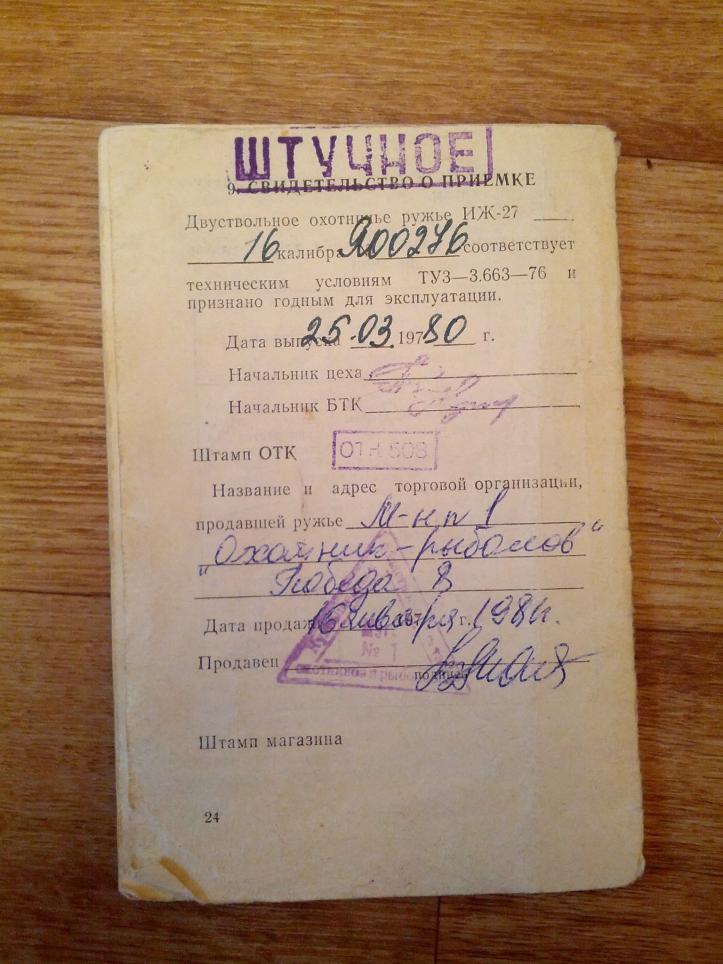 ШТУЧНОЕ
9. СВИДЕТЕЛЬСТВО О ПРИЕМКЕ
Двуствольное охотничье ружье ИЖ-27
16 калибра Я00276 соответствует
техническим условиям ТУЗ—3.663—76 и
признано годным для эксплуатации.
Дата выпуска 25.03.19780 г.
Начальник цеха
Начальник БТК
Штамп ОТК ОТК 508
Название и адрес торговой организации,
продавшей ружье М-н п 1
"Охотник-рыболов"
Победа 8
Дата продажи 16 января г. 1981г.
№ 1
Продавец
Штамп магазина
24